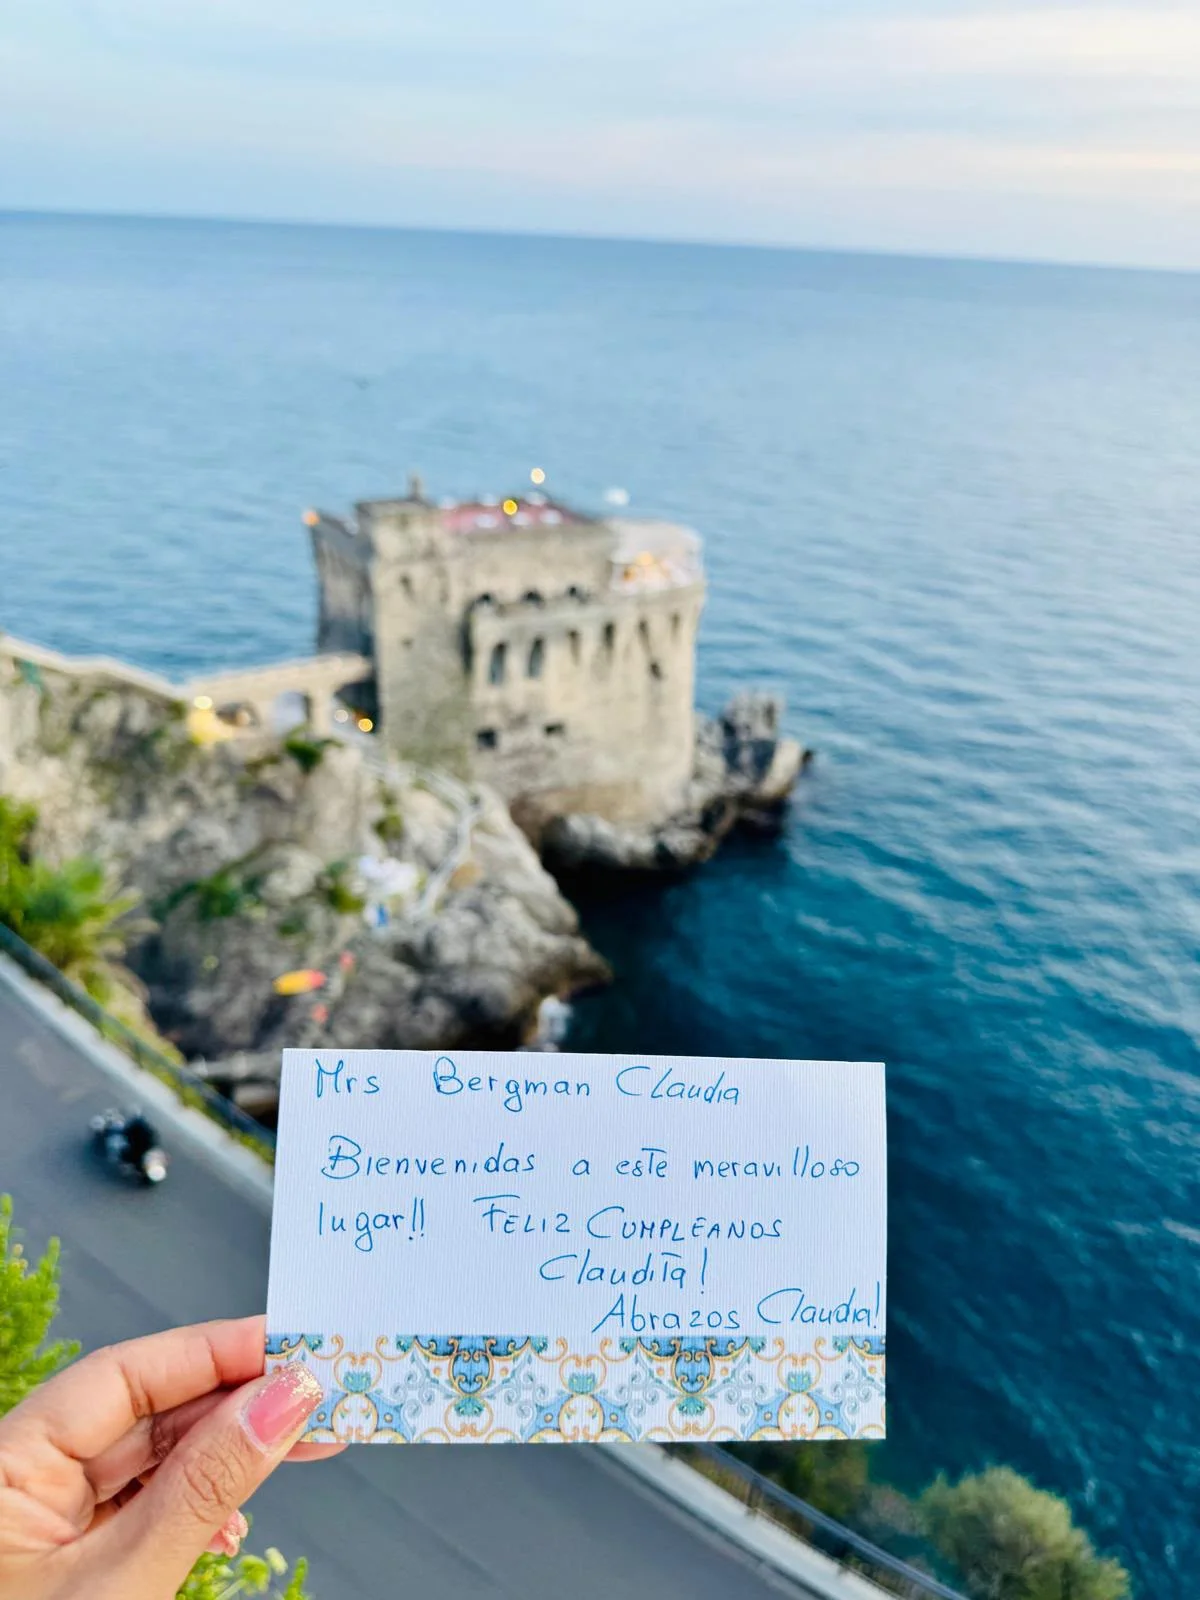 Mrs Bergman Claudia
Bienvenidas a este meravilloso
lugar!! FELIZ CUMPLEANOS
Claudita!
Abrazos Claudia!